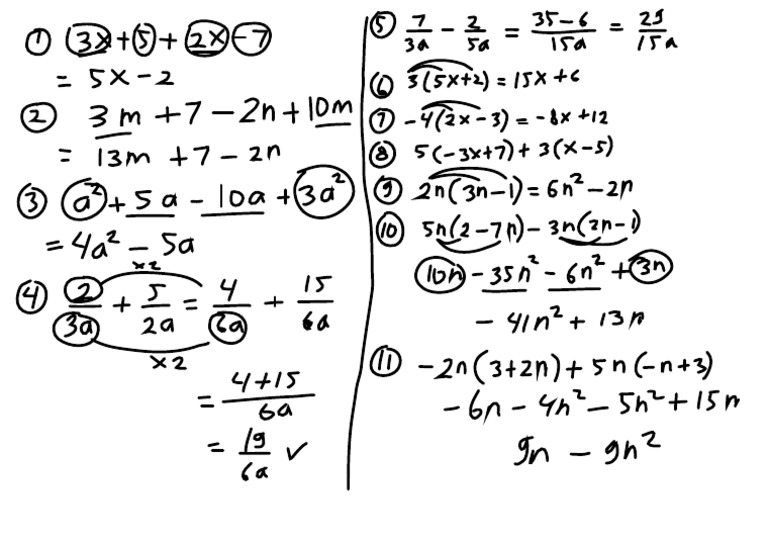 ① 3x + 5 + 2x - 7
= 5x - 2
② 3m + 7 - 2n + 10m
= 13m + 7 - 2n
③ a² + 5a - 10a + 3a²
= 4a² - 5a
x2
④ 2/3a + 5/2a = 4/6a + 15/6a
x2
= 4+15/6a
= 19/6a ✓
⑤ 7/3a - 2/5a = 35-6/15a = 29/15a
⑥ 3(5x+2) = 15x + 6
⑦ -4(2x-3) = -8x + 12
⑧ 5(-3x+7) + 3(x-5)
⑨ 2n(3n-1) = 6n² - 2n
⑩ 5n(2-7n) - 3n(2n-1)
10n - 35n² - 6n² + 3n
- 41n² + 13n
⑪ -2n(3+2n) + 5n(-n+3)
-6n - 4n² - 5n² + 15n
9n - 9n²